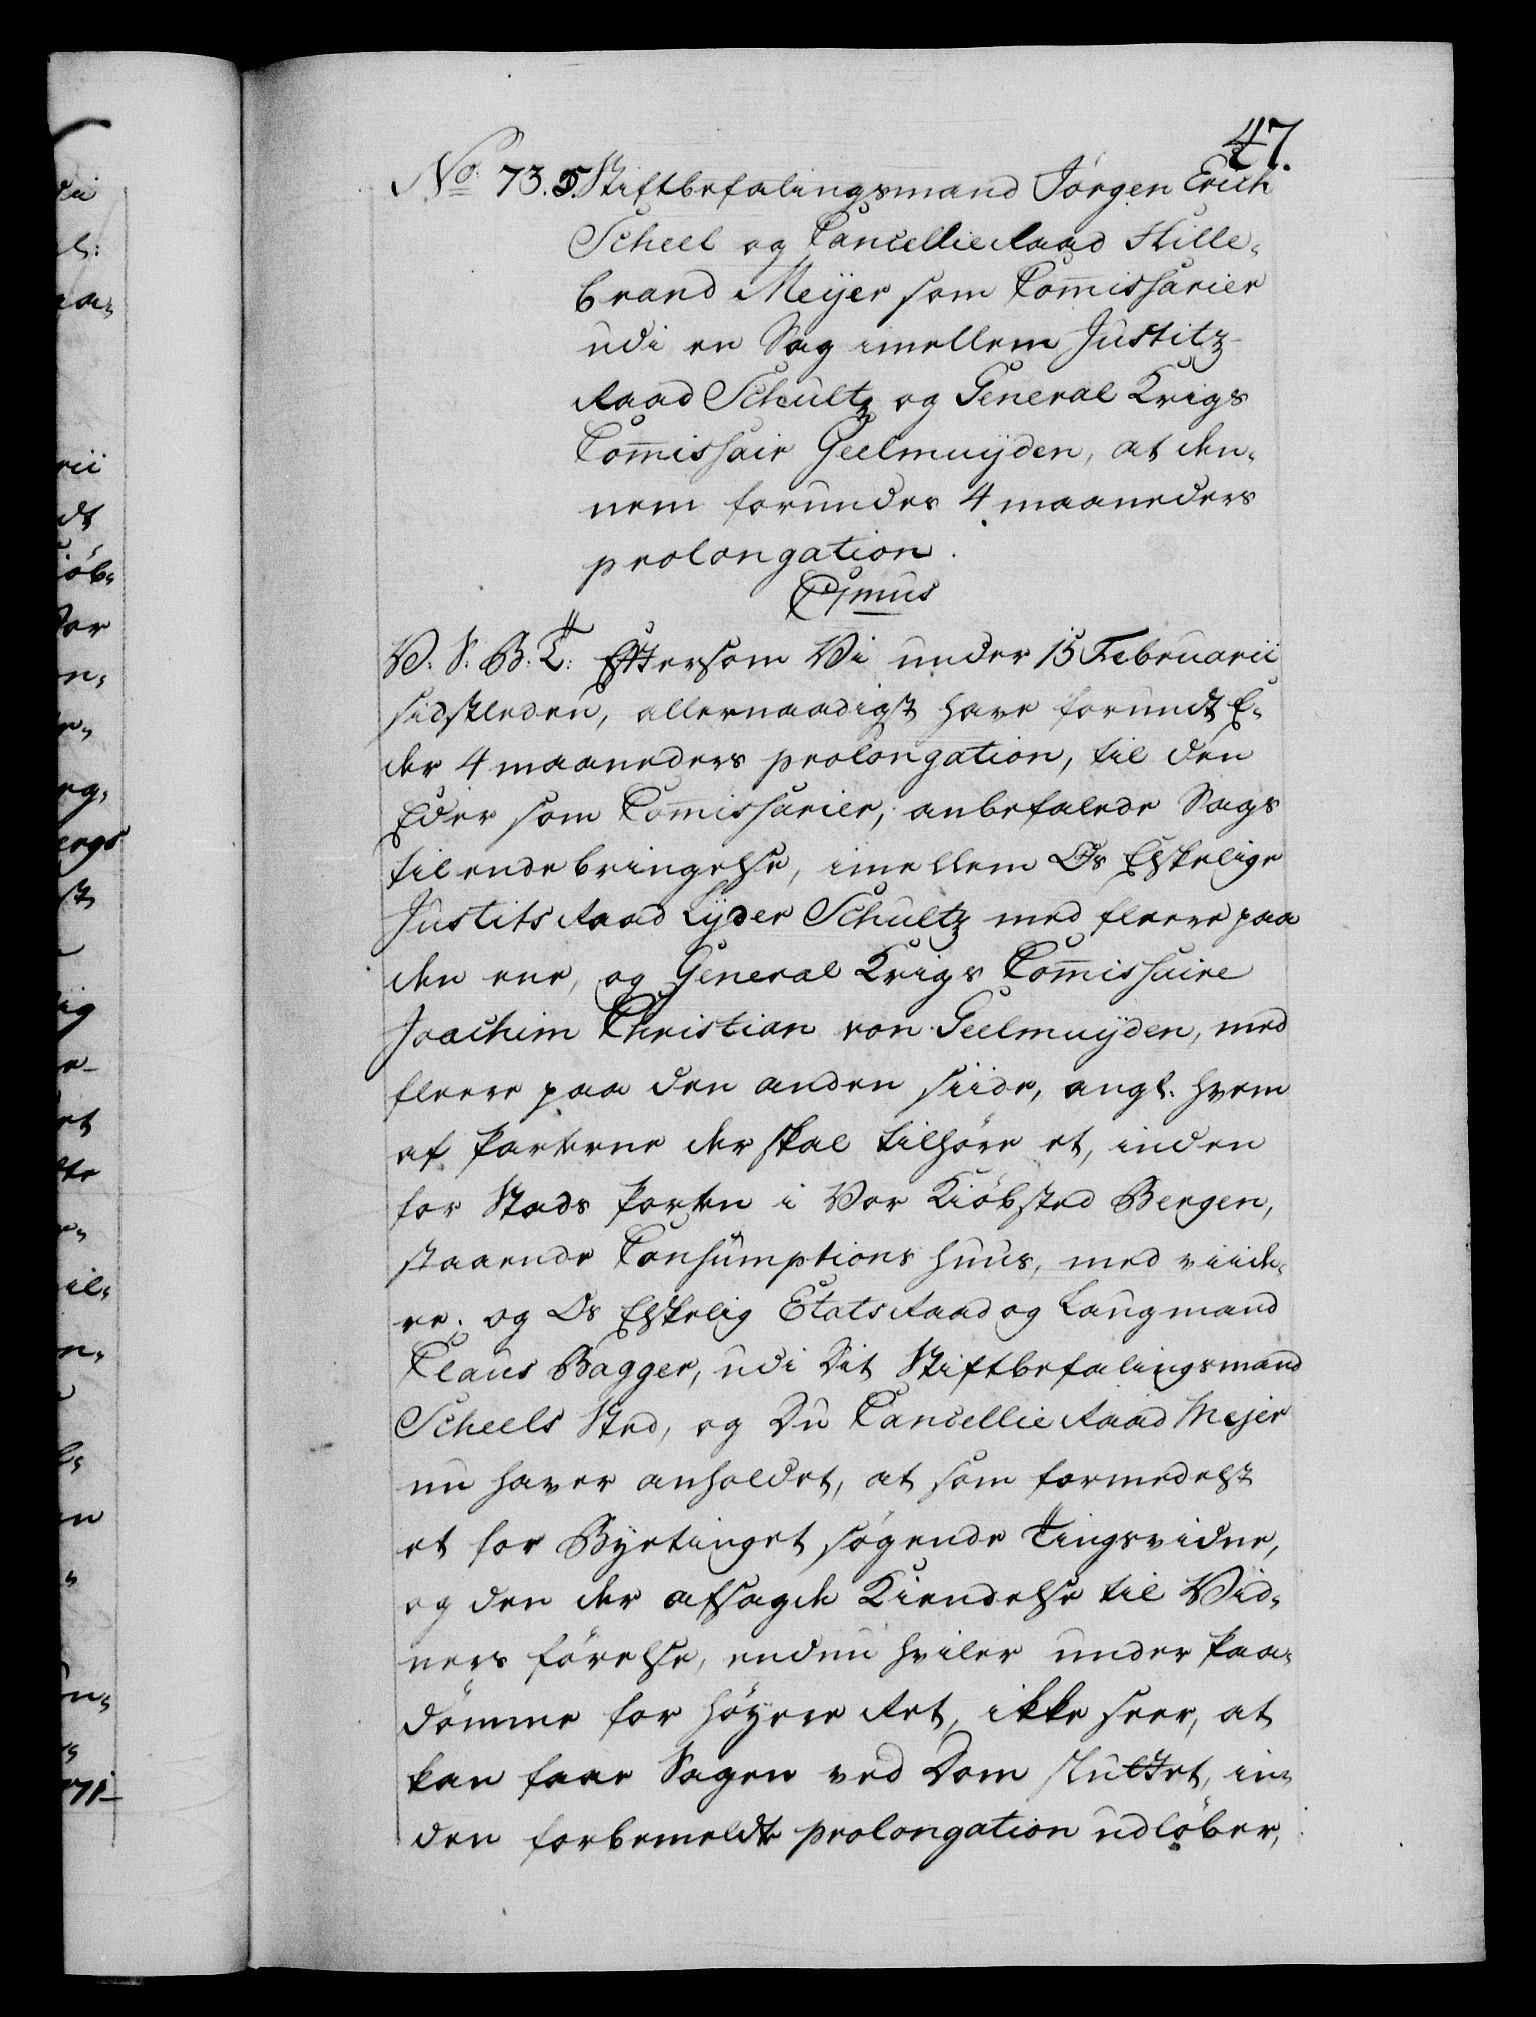 47.
No. 73. Stiftbefalingsmand Jörgen Erich
Scheel og CancellieRaad Hille-
brand Meÿer som Commissarier
udi en Sag imellem Justitz-
Raad Schultz og General Krigs
Commissair Geelmuÿden, at den-
nem forundes 4 maaneders
prolongation.
C7mus
V. S. B. T: Eftersom Vi under 15 Februarii
sidstleden, allernaadigst have forundt E-
der 4 maaneders prolongation, til den
Eder som Commissarier, anbefalede Sags
tilendebringelse, imellem Os Elskelige
Justits Raad Lÿder Schultz med fleere paa
den ene, og General Krigs Commissaire
Joachim Christian von Geelmuÿden, med
fleere paa den anden siide, angl. hvem
af Parterne der skal tilhöre et, inden
for Stads Porten i Vor Kiöbsted Bergen,
staaende Consumptions huus, med viide-
re; og Os Elskelig EtatsRaad og Laugmand
Claus Bagger, udi Dit Stiftbefalingsmand
Scheels Sted, og Du CancellieRaad Mejer
nu haver anholdet, at som formedelst
et for Byetinget søgende Tingsvidne,
og den der afsagde Kiendelse til Vid-
ners förelse, endnu hviler under Paa-
dömme for höyere Ret, ikke seer, at
kan faae Sagen ved Dom sluttet, in-
den forbemeldte prolongation udlöber,